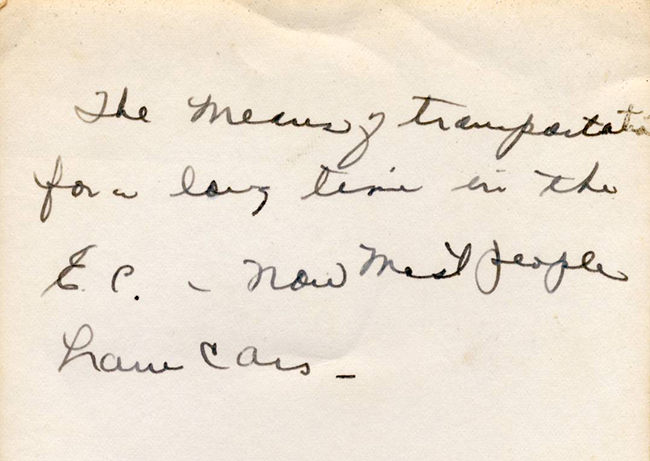 The Means of transportation
for a long time in the
E.C. - Now Most people
have Cars -